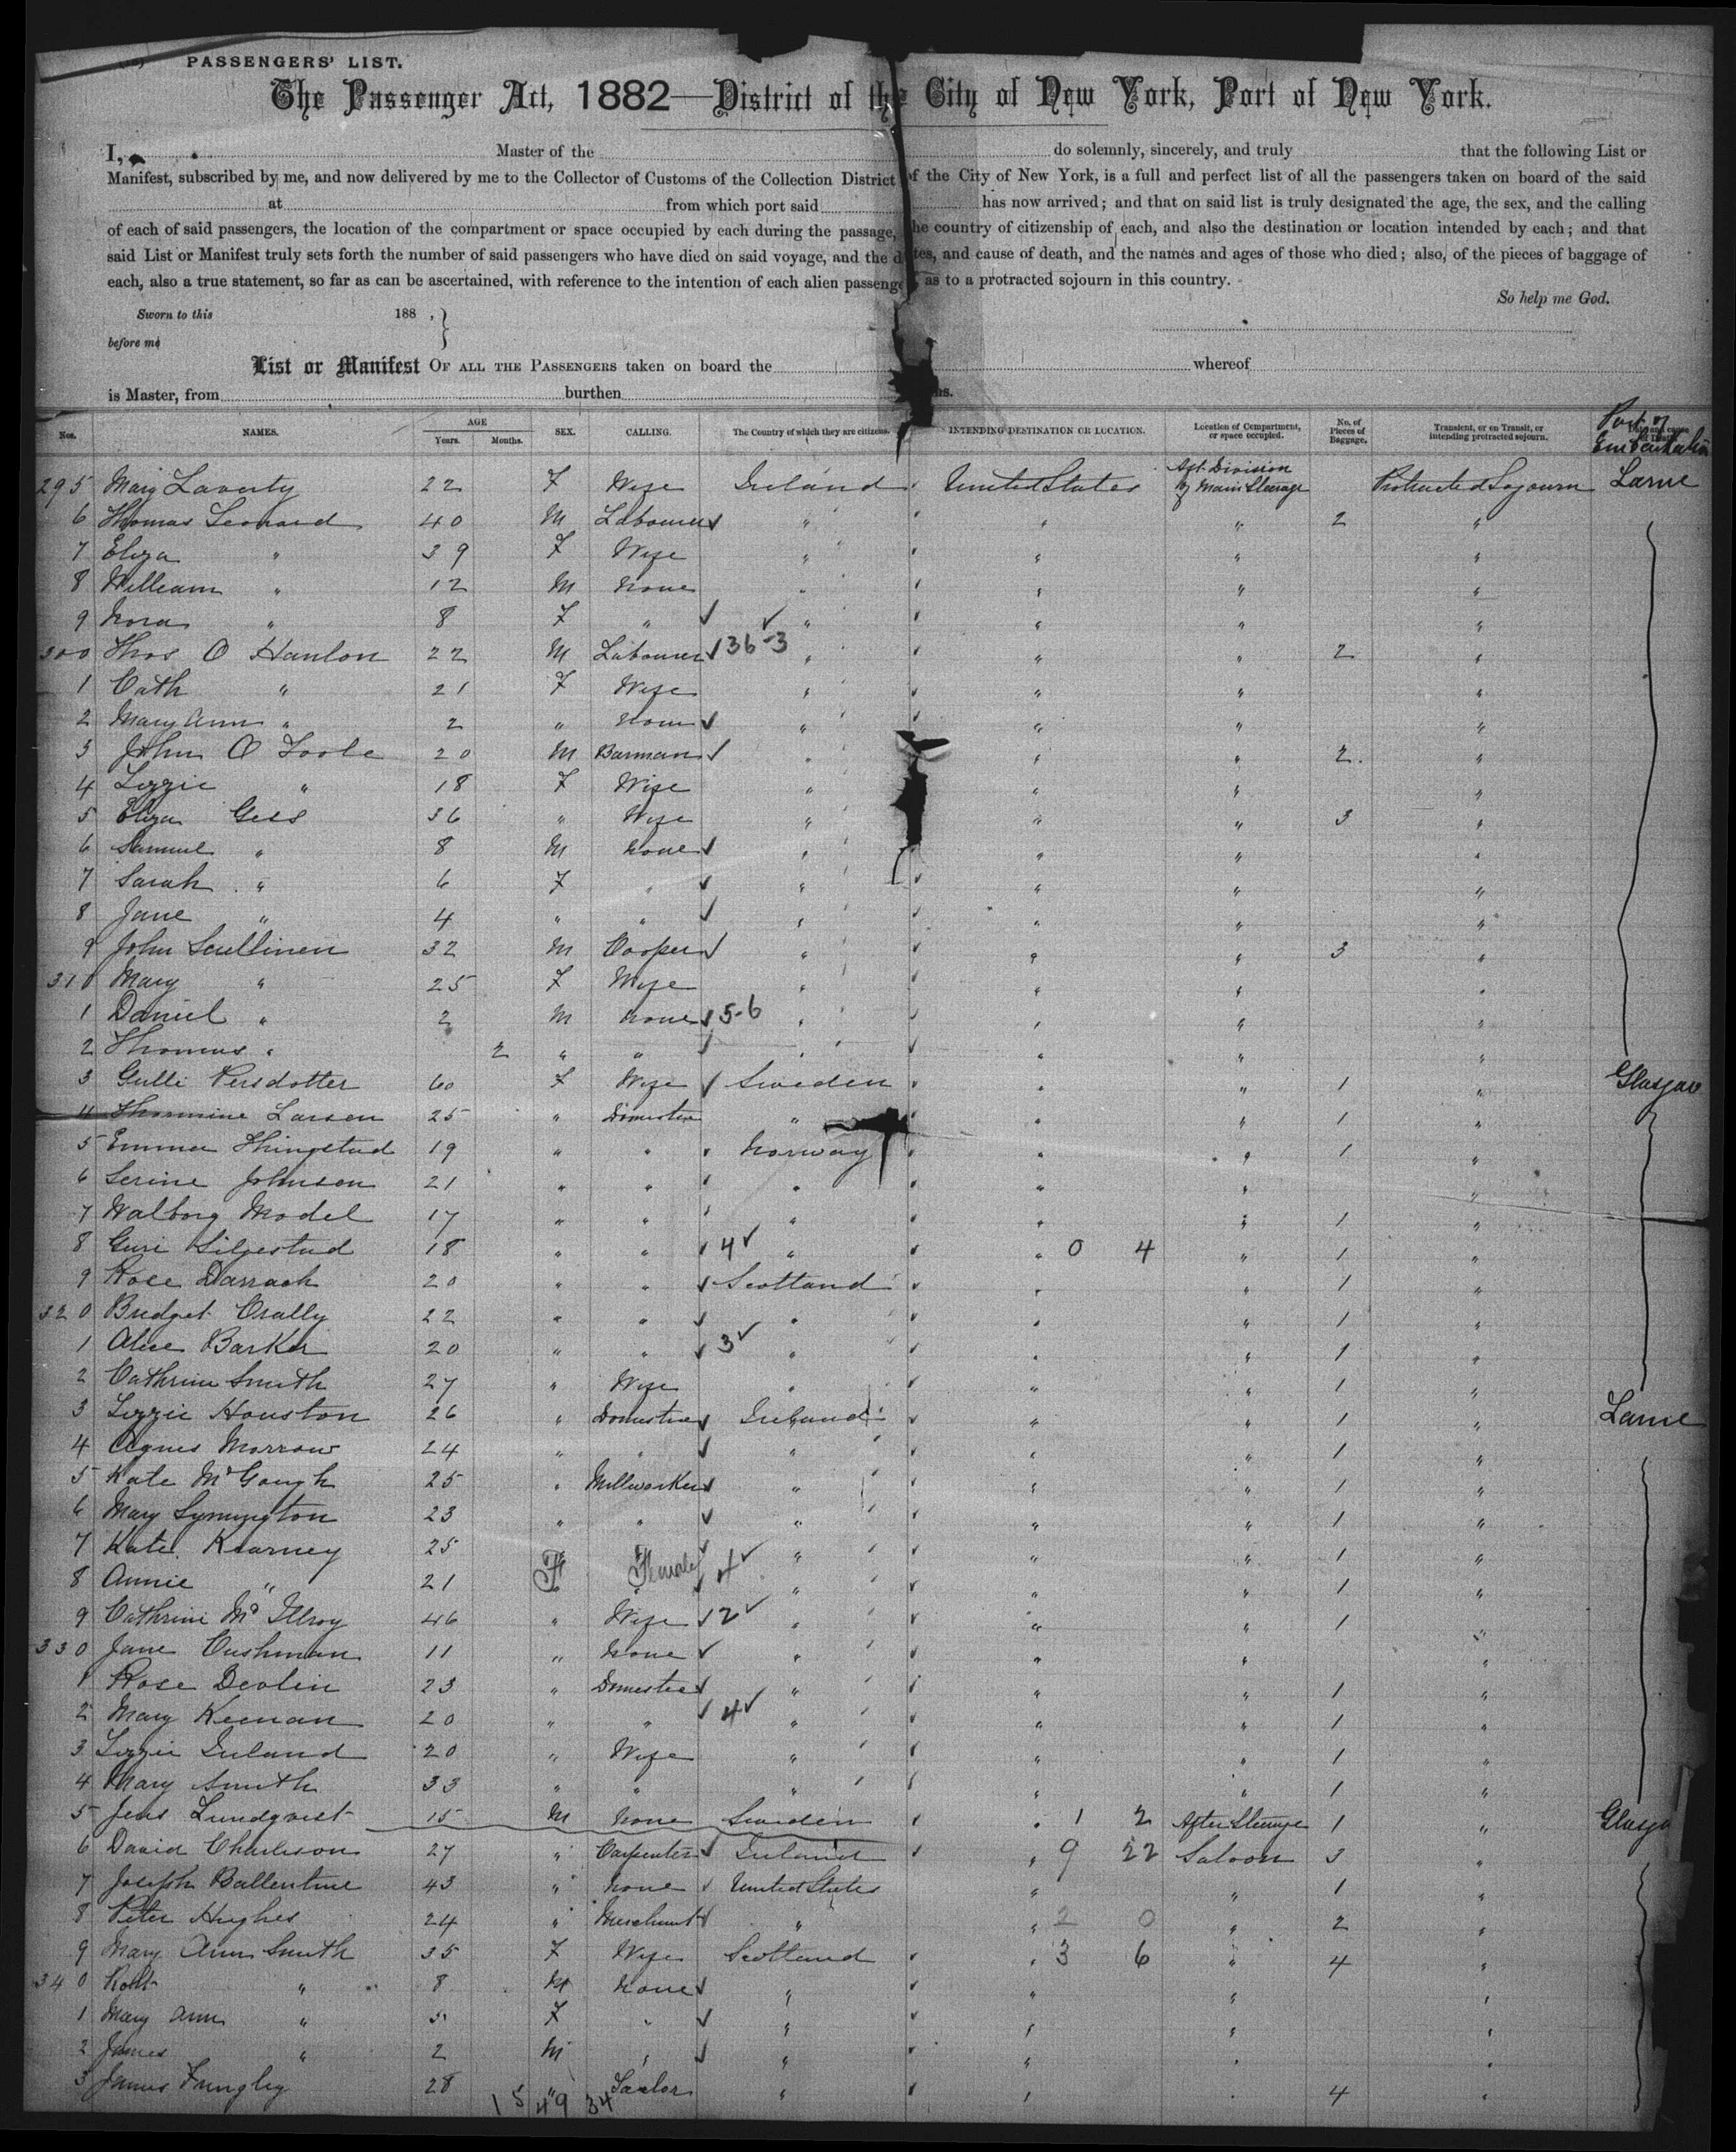 PASSENGERS' LIST.
The Passenger Act, 1882—District of the City of New York, Port of New York.
I, Master of the do solemnly, sincerely, and truly that the following List or
Manifest, subscribed by me, and now delivered by me to the Collector of Customs of the Collection District of the City of New York, is a full and perfect list of all the passengers taken on board of the said
at from which port said has now arrived; and that on said list is truly designated the age, the sex, and the calling
of each of said passengers, the location of the compartment or space occupied by each during the passage, the country of citizenship of each, and also the destination or location intended by each; and that
said List or Manifest truly sets forth the number of said passengers who have died on said voyage, and the dates, and cause of death, and the names and ages of those who died; also, of the pieces of baggage of
each, also a true statement, so far as can be ascertained, with reference to the intention of each alien passenger, as to a protracted sojourn in this country.
So help me God.
Sworn to this 188 , }
before me
List or Manifest OF ALL THE PASSENGERS taken on board the whereof
is Master, from burthen
Nos. NAMES. AGE Years. Months. SEX. CALLING. The Country of which they are citizens. INTENDING DESTINATION OR LOCATION. Location of Compartment, or space occupied. No. of Pieces of Baggage. Transient, or on Transit, or intending protracted sojourn. Port of Embarkation
295 Mary Laverty 22 F Wife Ireland United States Aft Division of Main Steerage Protracted Sojourn Larne
6 Thomas Leonard 40 M Labourer " " " 2 "
7 Eliza " 39 F Wife " " " "
8 William " 12 M None " " " "
9 Nora " 8 F " " " " "
300 Thos O Hanlon 22 M Labourer 36-3 " " " 2 "
1 Cath " 21 F Wife " " " "
2 Mary Ann " 2 " None " " " "
3 John O Toole 20 M Barman " " " 2 "
4 Lizzie " 18 F Wife " " " "
5 Eliza Gels 36 " Wife " " " 3 "
6 Samuel " 8 M None " " " "
7 Sarah " 6 F " " " " "
8 Jane " 4 " " " " " "
9 John Scullinen 32 M Cooper " " " 3 "
310 Mary " 25 F Wife " " " "
1 Daniel " 2 M None 5-6 " " " "
2 Thomas " 2 " " " " " "
3 Gulli Persdotter 60 F Wife Sweden " " 1 " Glasgow
4 Thormine Larsen 25 " Domestic " " " 1 "
5 Emma Thingstad 19 " " Norway " " 1 "
6 Serine Johnson 21 " " " " " "
7 Walborg Model 17 " " " " " 1 "
8 Guri Silgestud 18 " " 4 " " 0 4 " 1 "
9 Rose Darrach 20 " " Scotland " " 1 "
320 Bridget Orally 22 " " " " " 1 "
1 Alice Barker 20 " " 3 " " " 1 "
2 Cathrine Smith 27 " Wife " " " 1 "
3 Lizzie Houston 26 " Domestic Ireland " " 1 " Larne
4 Agnes Morrow 24 " " " " " 1 "
5 Kate McGough 25 " Millworker " " " 1 "
6 Mary Symington 23 " " " " " 1 "
7 Kate Kearney 25 " " " " " 1 "
8 Annie " 21 F Female 4 " " " 1 "
9 Cathrine Mc Ilroy 46 " Wife 2 " " " 1 "
330 Jane Cushman 11 " None " " " "
1 Rose Devlin 23 " Domestic " " " 1 "
2 Mary Keenan 20 " " 4 " " " 1 "
3 Lizzie Ireland 20 " Wife " " " 1 "
4 Mary Smith 33 " " " " " 1 "
5 Jens Lundqvist 15 M None Sweden " 1 2 After Steerage 1 " Glasgo
6 David Charleson 27 " Carpenter Ireland " 9 22 Saloon 3 "
7 Joseph Ballentine 43 " None United States " " 1 "
8 Peter Hughes 24 " Merchant " " 2 0 " 2 "
9 Mary Ann Smith 35 F Wife Scotland " 3 6 " 4 "
340 Robt " 8 M None " " " "
1 Mary Ann " 5 F " " " " "
2 James " 2 M " " " " "
3 James 28 " " " " 4 "
15 49 34